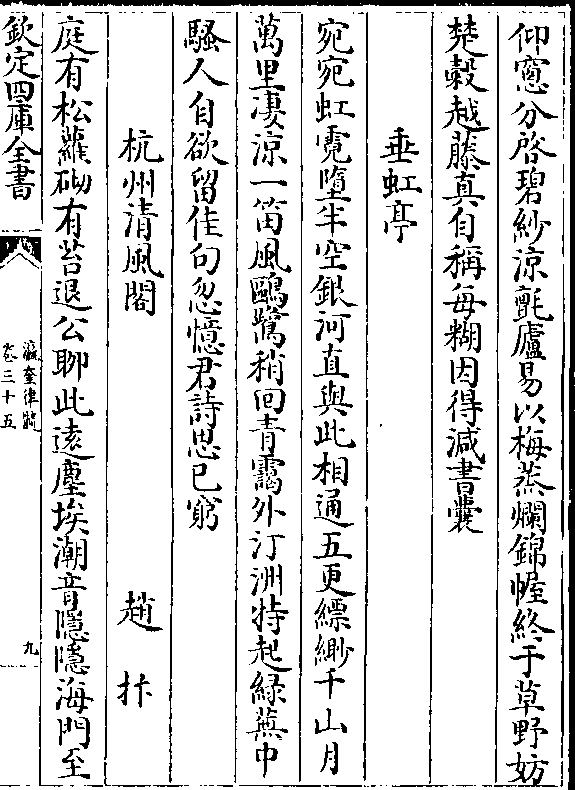 仰窻分啓碧紗涼氊廬易以梅蒸爛錦幄終于草野妨
楚榖越藤真自稱每糊因得減書囊
垂虹亭
宛宛虹霓墮半空銀河直與此相通五更縹緲千山月
萬里凄涼一笛風鷗鷺稍回青靄外汀洲特起綠蕪中
騷人自欲留佳句忽憶君詩思已窮
杭州清風閣 趙抃
庭有松蘿砌有苔退公聊此逺塵埃潮音隱隱海門至
欽定四庫全書
瀛奎律髓
卷三十五
九